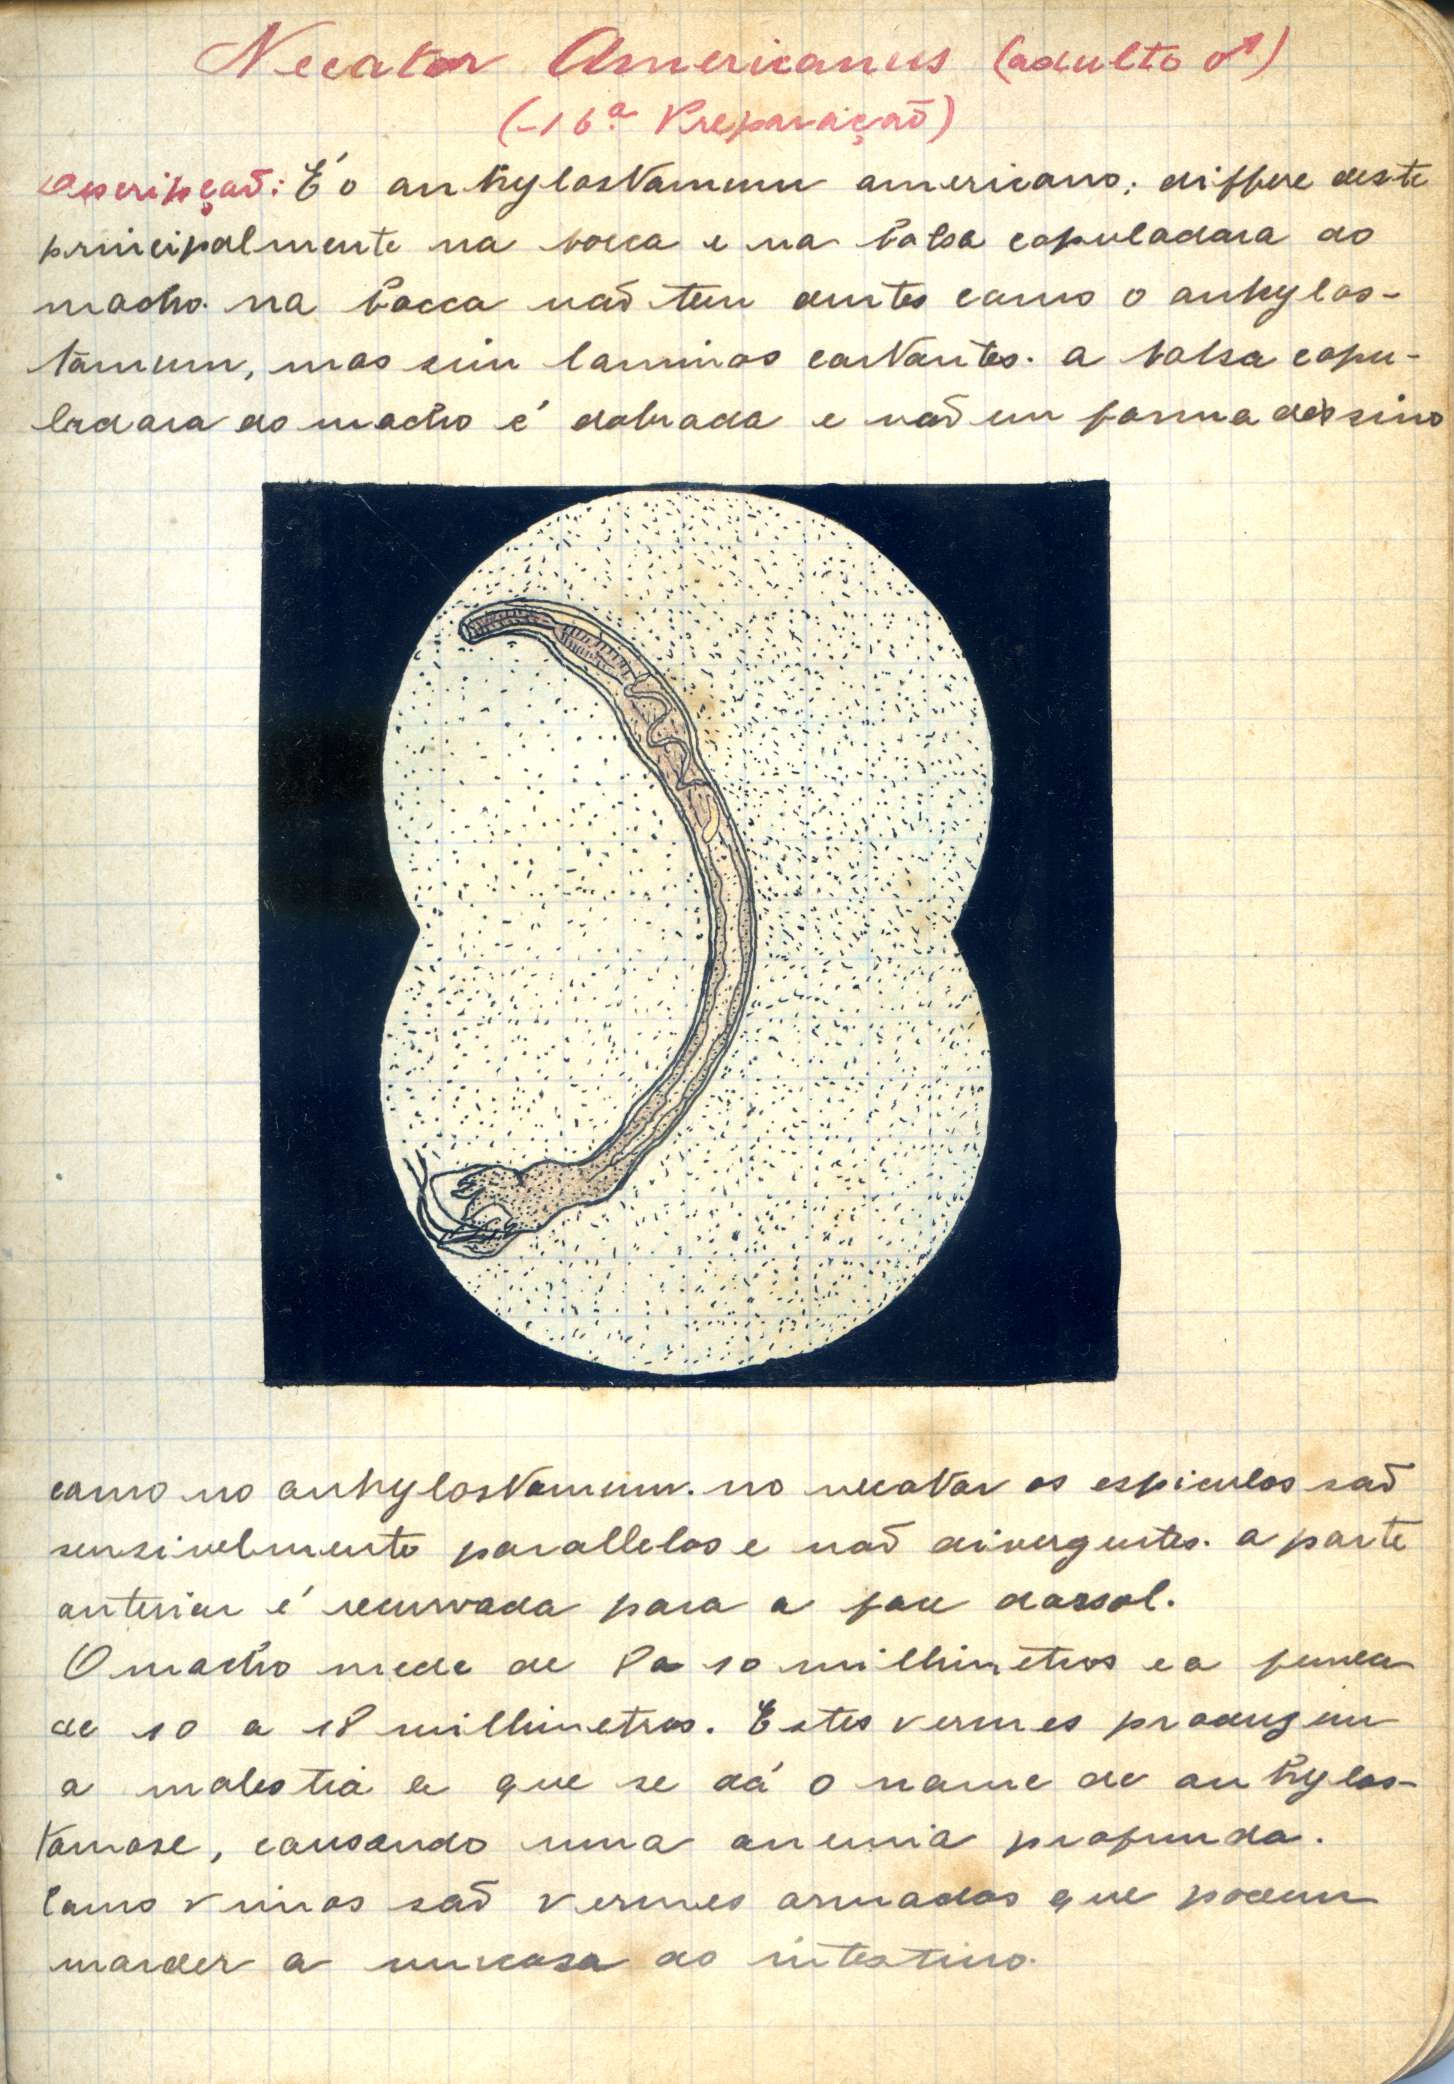 Necator Americanus (adulto ♂)
(-16ª Preparação)
Descripção: É o ankylostomum americano; differe deste
principalmente na bocca e na bolsa copuladora do
macho. na bocca não tem dentes como o ankylos-
tomum, mas sim laminas cortantes. a bolsa copu-
ladora do macho é dobrada e não em forma de sino
como no ankylostomum. no necator os espiculos são
sensivelmente parallelos e não divergentes. a parte
anterior é recurvada para a face dorsal.
O macho mede de 8 a 10 millimetros e a femea
de 10 a 18 millimetros. Estes vermes produzem
a molestia a que se dá o nome de ankylos-
tomose, causando uma anemia profunda.
Como vimos são vermes armados que podem
morder a mucosa do intestino.